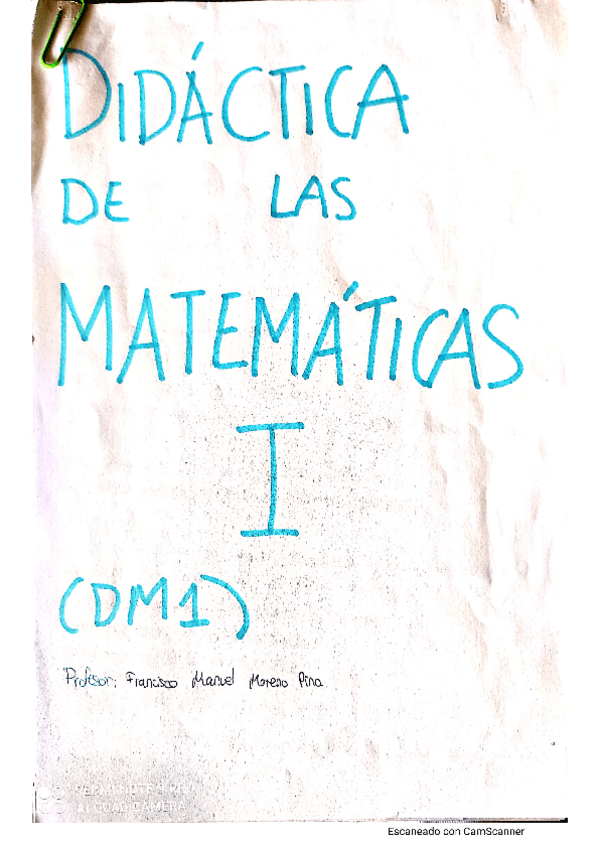 DIDÁCTICA
DE LAS
MATEMÁTICAS
I
(DM1)
Profesor: Francisco Manuel Moreno Pina
AI QUAD CAMERA
Escaneado con CamScanner